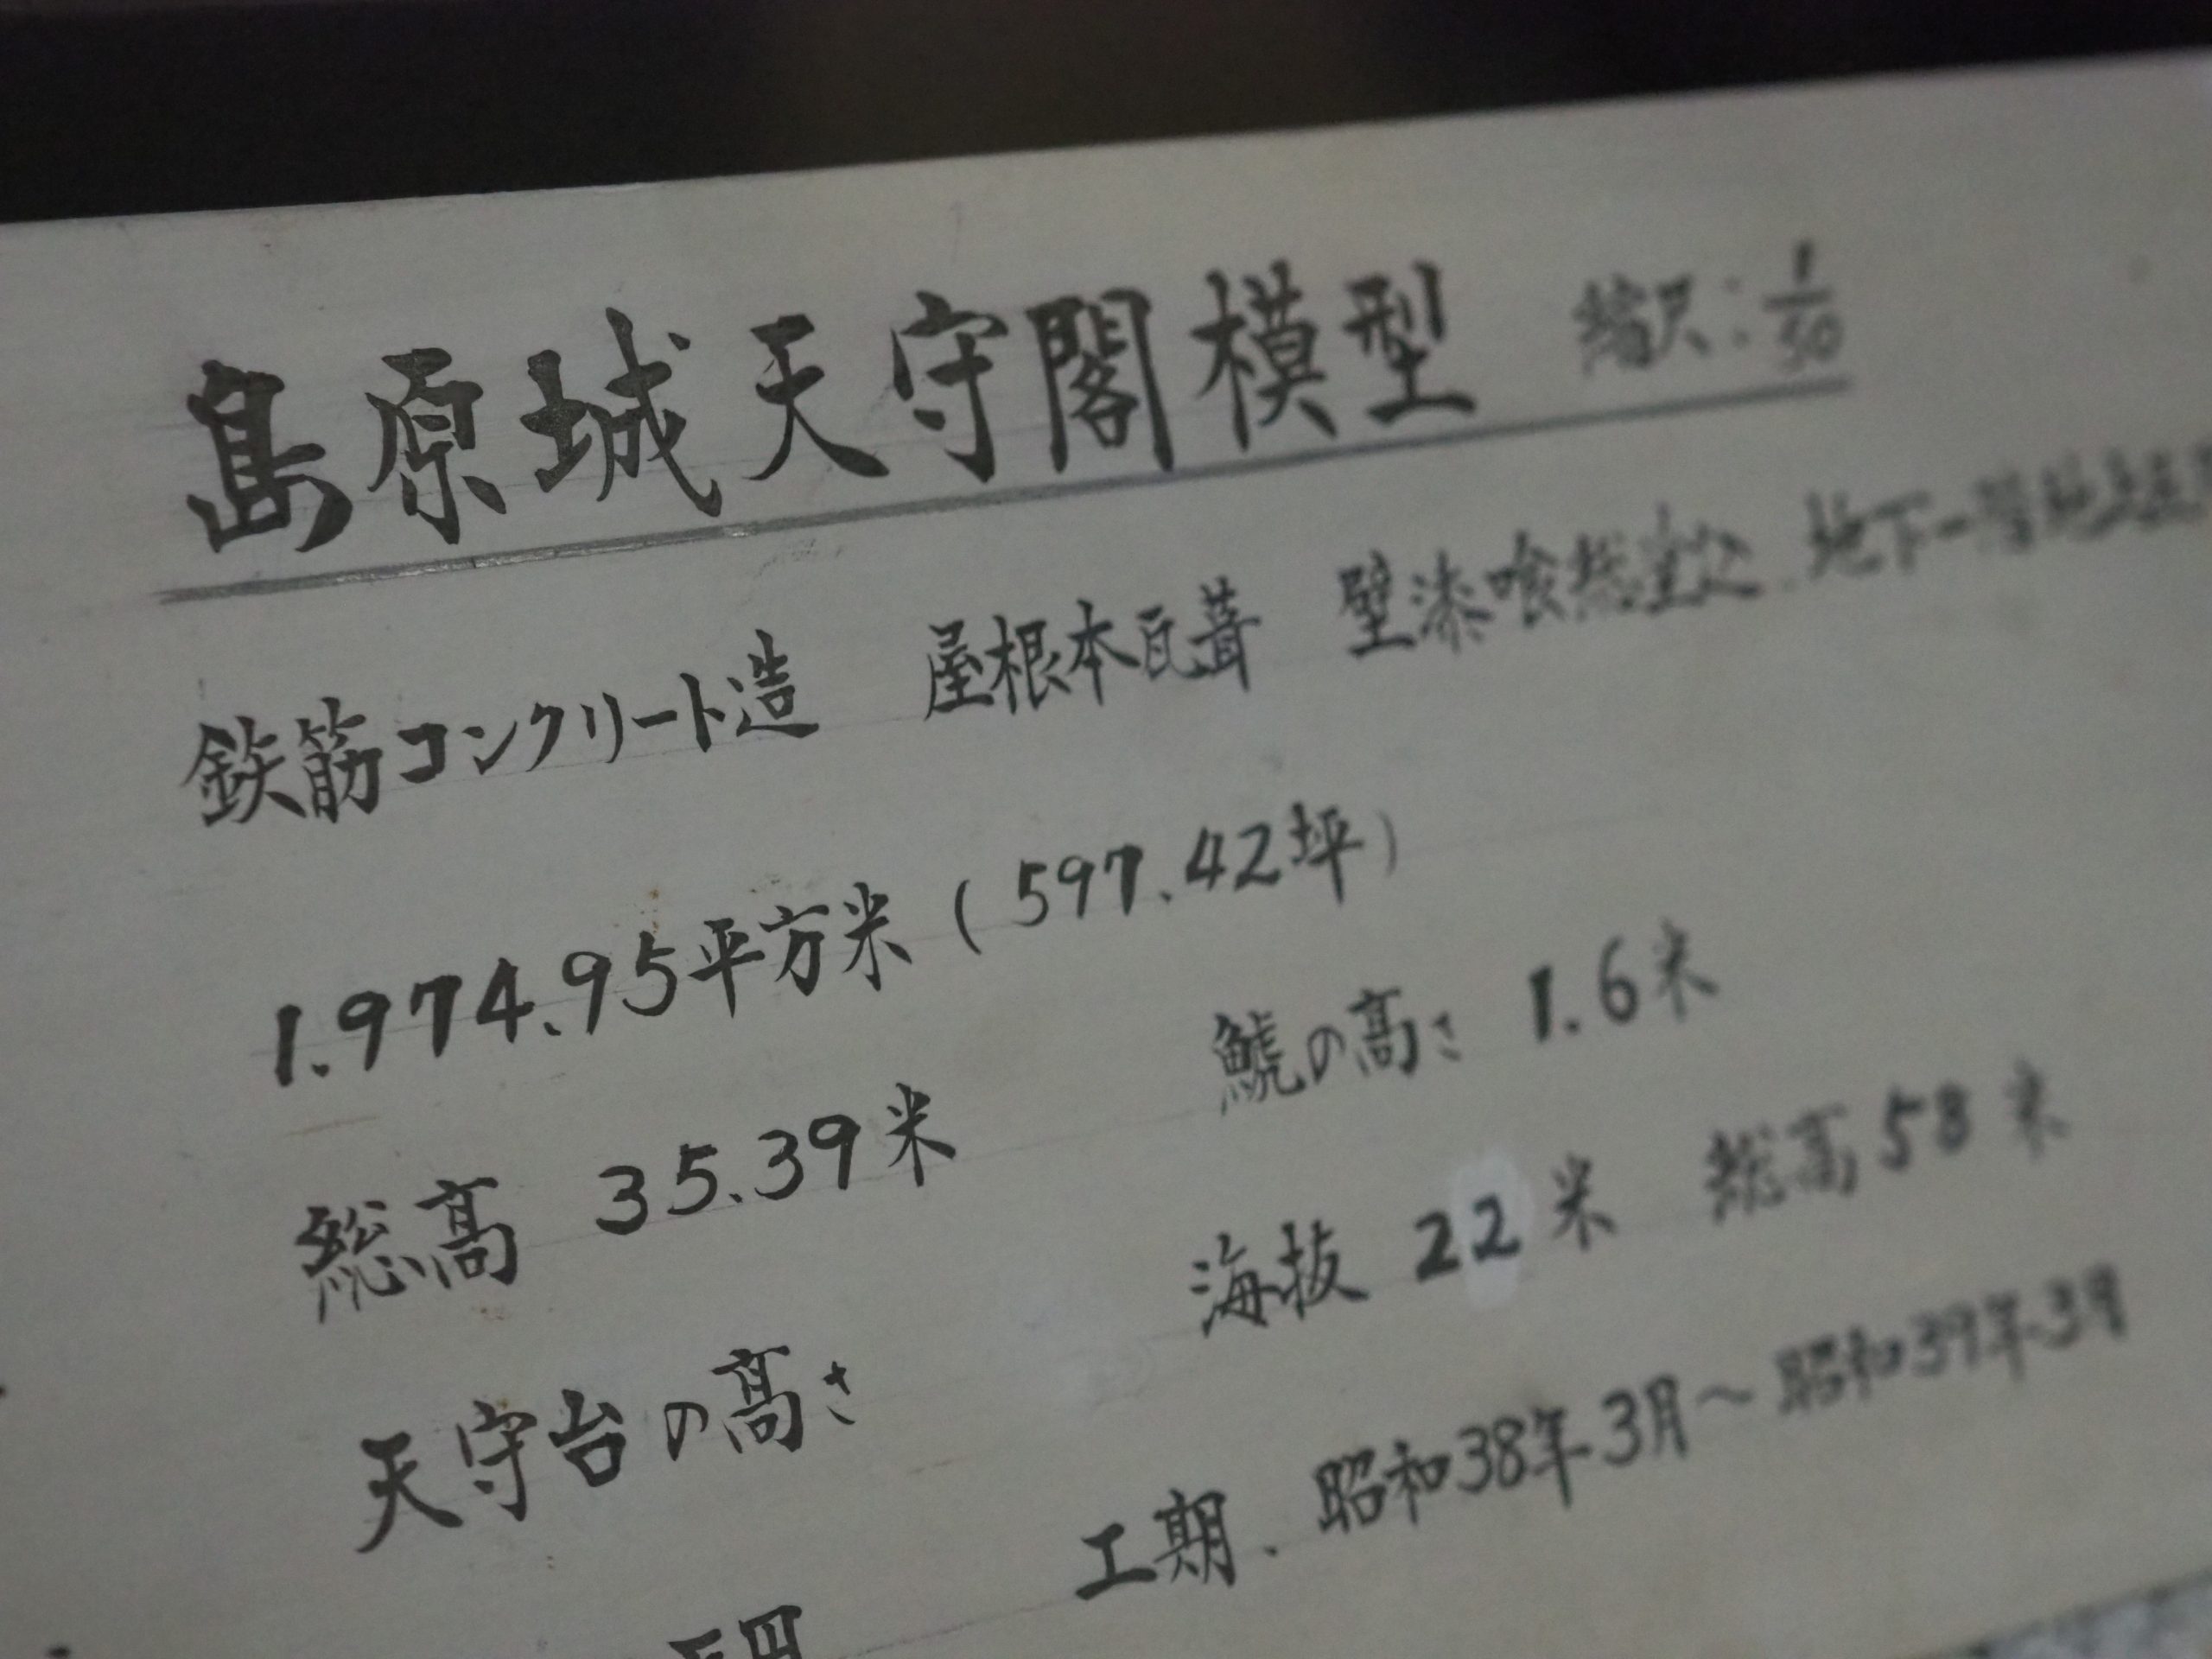 島原城天守閣模型 縮尺:1/50
鉄筋コンクリート造 屋根本瓦葺 壁漆喰総塗込 地下一階地上五
1.974.95平方米(597.42坪)
総高 35.39米 鯱の高さ 1.6米
天守台の高さ 海抜 22米 総高58米
工期. 昭和38年3月~昭和39年3月
万円